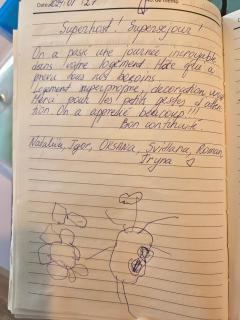 Date
No. de
Superhost! Supersejour!
On a passé une journée incroyable
dans votre logement. Hôte qui a
prévu tous nos besoins.
Logement superpropre, décoration
Merci pour les petits gestes d'atten
tion. On a apprécié beaucoup!!!
Bon continuité.
Nataliia, Igor, Oksana, Svitlana, Roman,
Iryna